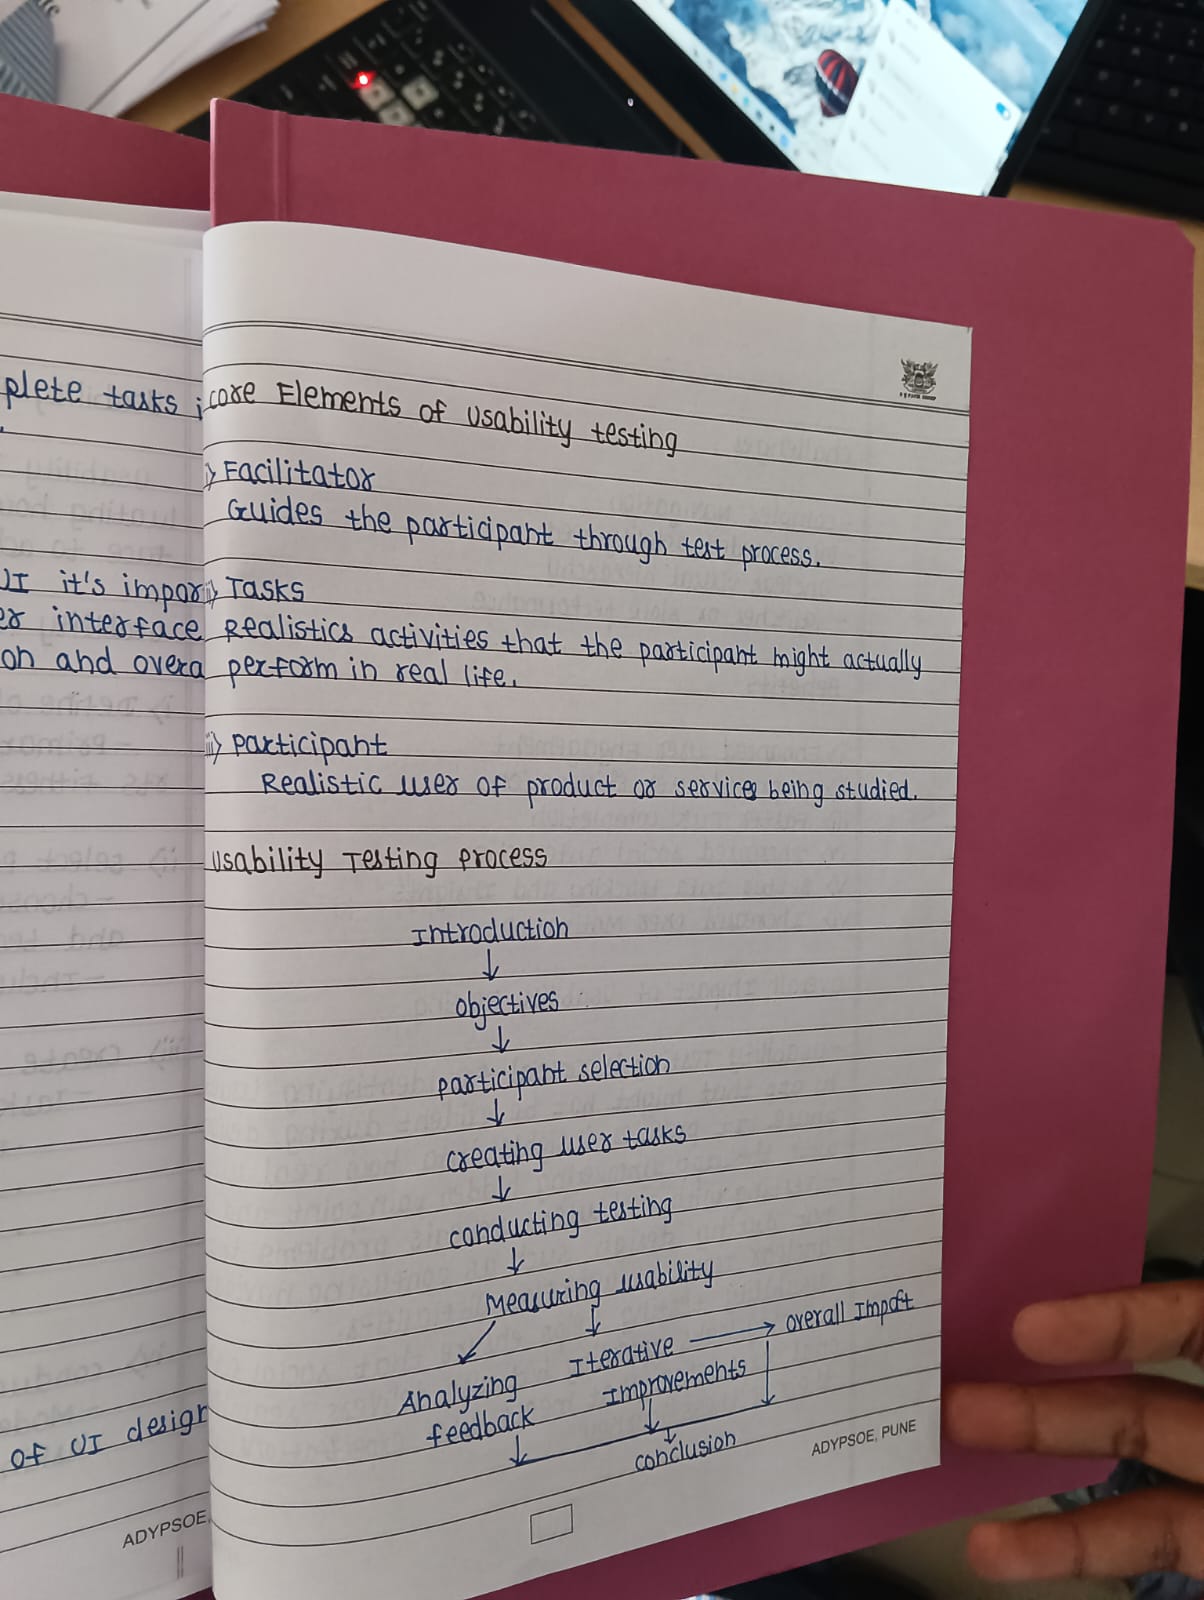 plete tasks i
UI it's impor
er interface
on and overa
of UI design
ADYPSOE,
core Elements of Usability testing
i) Facilitator
Guides the participant through test process.
ii) Tasks
Realistics activities that the participant might actually
perform in real life.
iii) participant
Realistic user of product or services being studied.
Usability Testing Process
Introduction
↓
objectives
↓
participant selection
↓
creating user tasks
↓
conducting testing
↓
Measuring usability
Iterative → overall Impact
Improvements
Analyzing
feedback
conclusion
ADYPSOE, PUNE